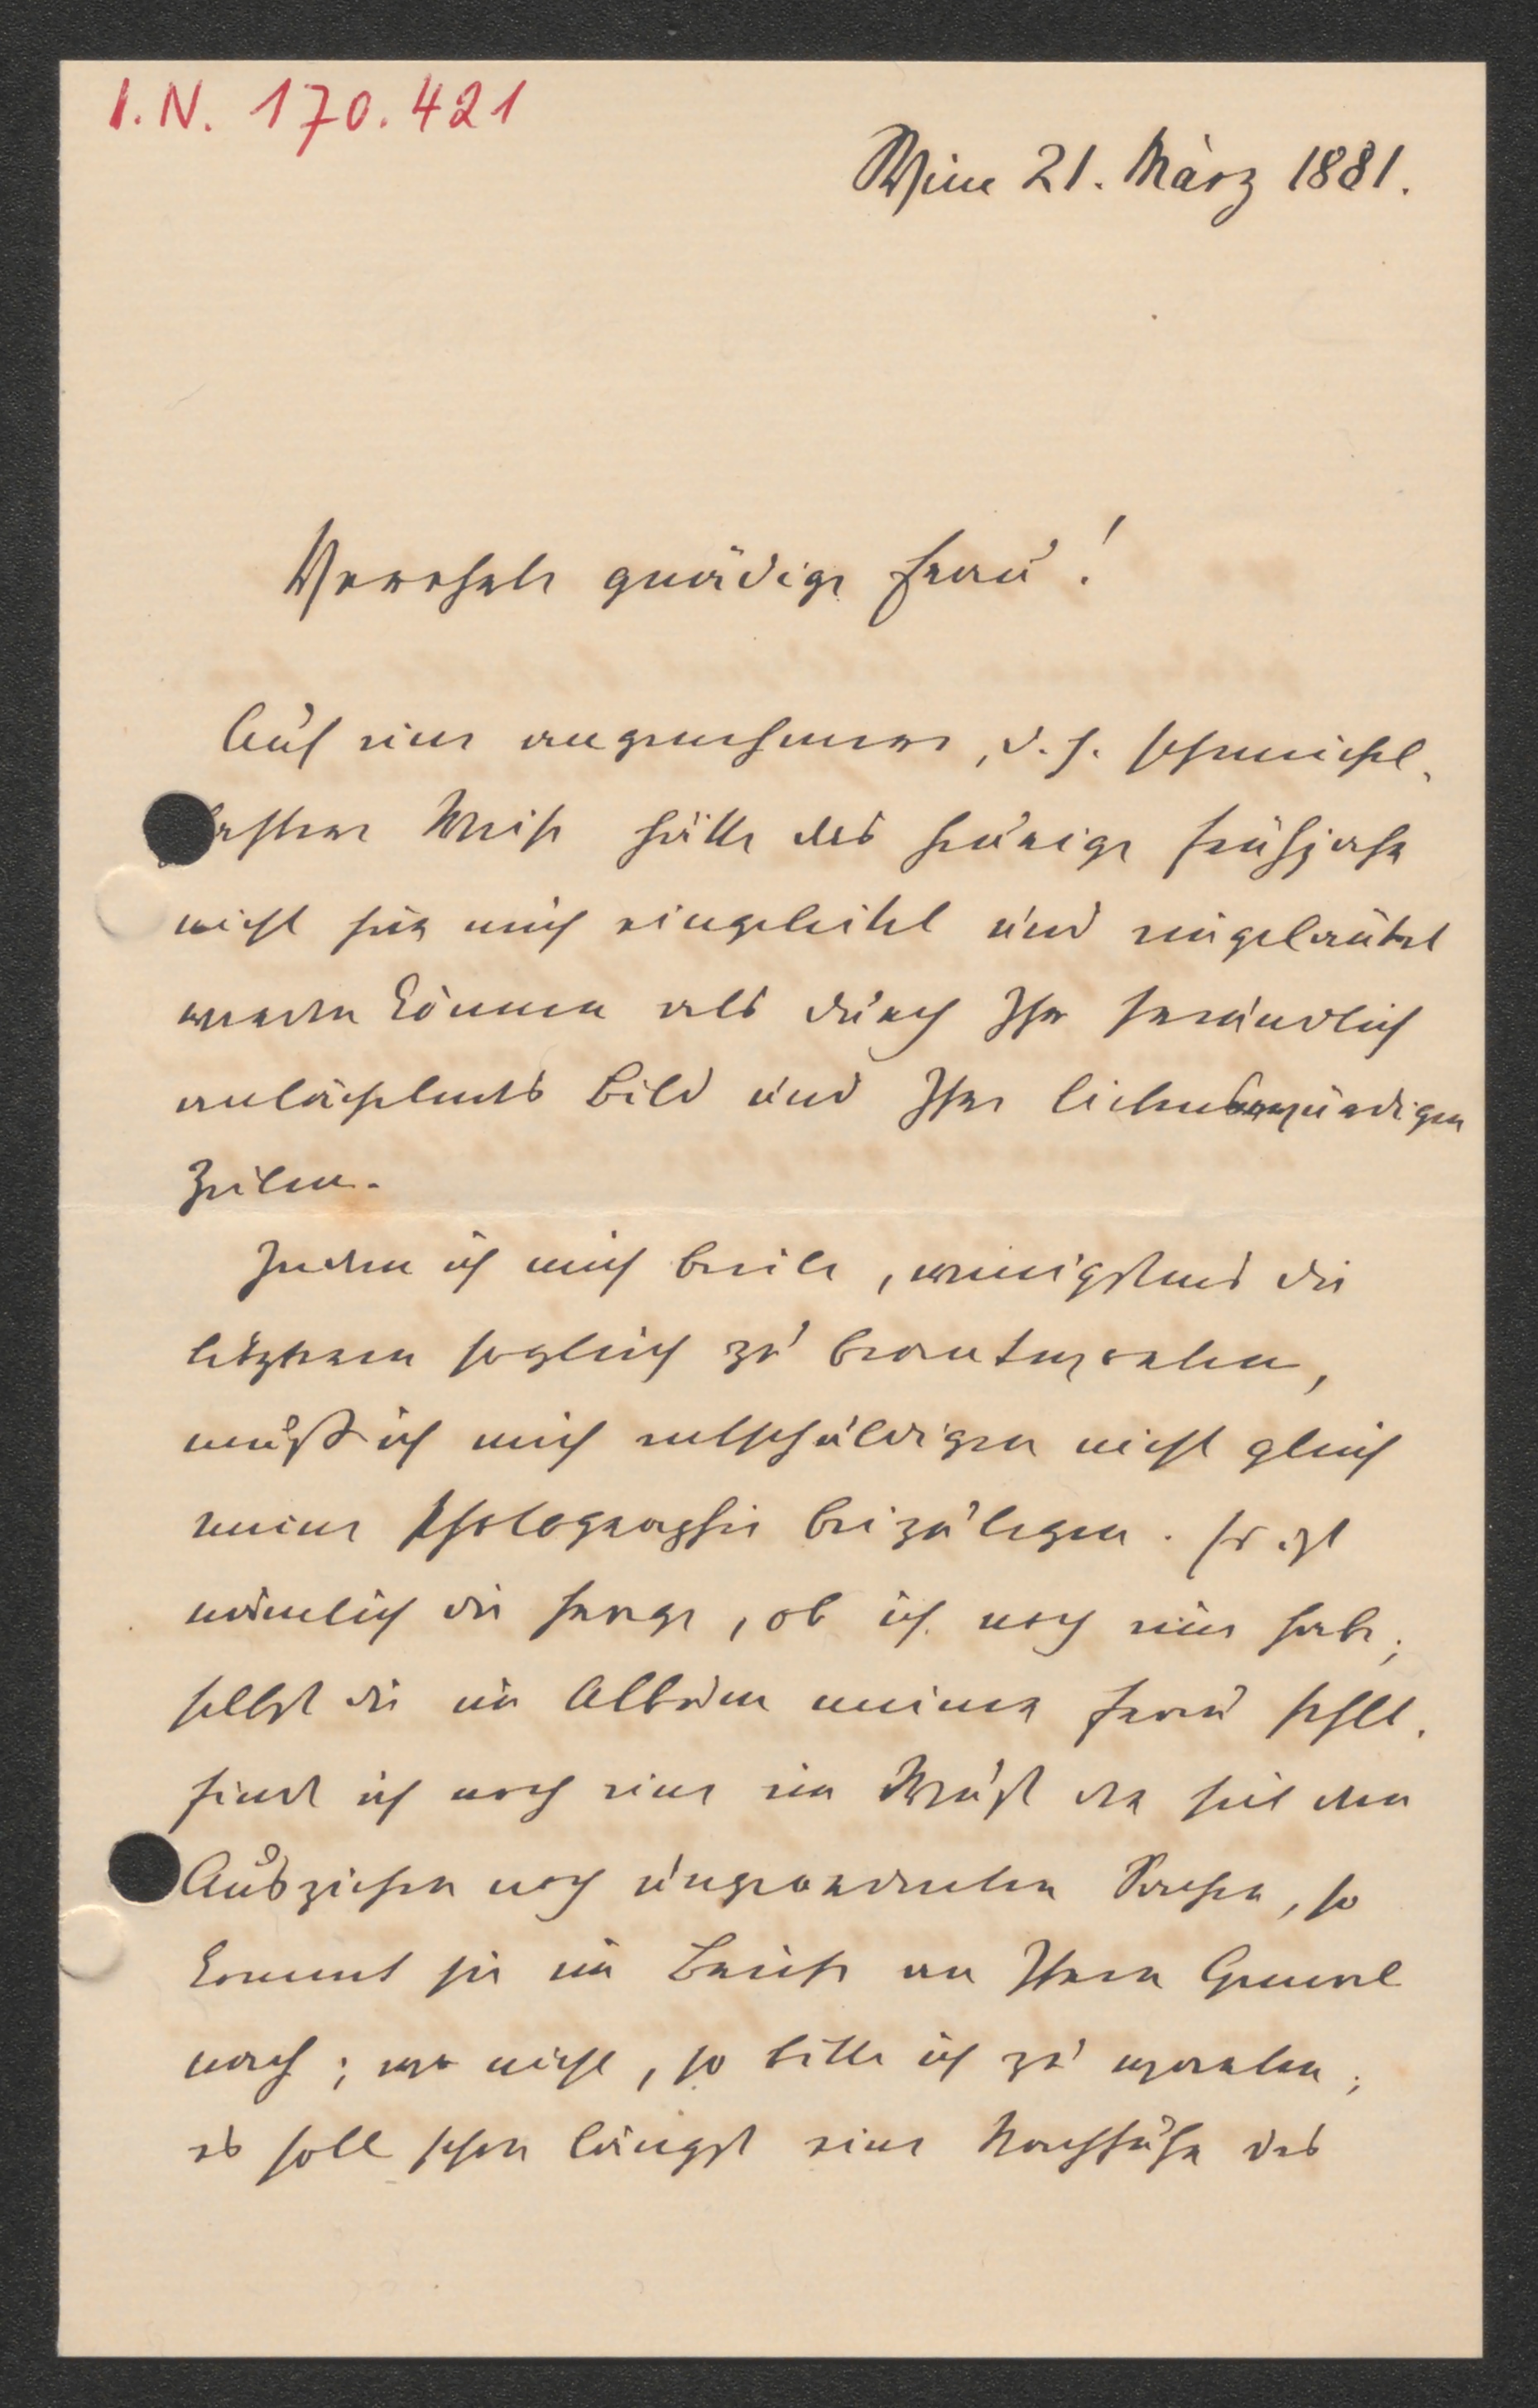 I.N. 170.421
Wien 21. März 1881.
Verehrte gnädige Frau!
Auf eine angenehmere, d. h. schmeichel-
haftere Weise hätte das heurige Frühjahr
nicht für mich eingeleitet und eingeläutet
werden können als durch Ihr freundlich
anlächelndes Bild und Ihre liebenswürdigen
Zeilen.
Indem ich mich beeile, wenigstens die
letzteren sogleich zu beantworten,
muß ich mich entschuldigen nicht gleich
meine Photographie beizulegen. Es ist
nämlich die Frage, ob ich noch eine habe;
selbst die im Album meiner Frau fehlt.
Findet sich noch eine im Wust der seit dem
Ausziehen noch ungeordneten Sachen, so
kommt sie im Briefe an Ihren Gemal
nach; wo nicht, so bitte ich zu warten;
es soll schon längst eine Nachfuhr des